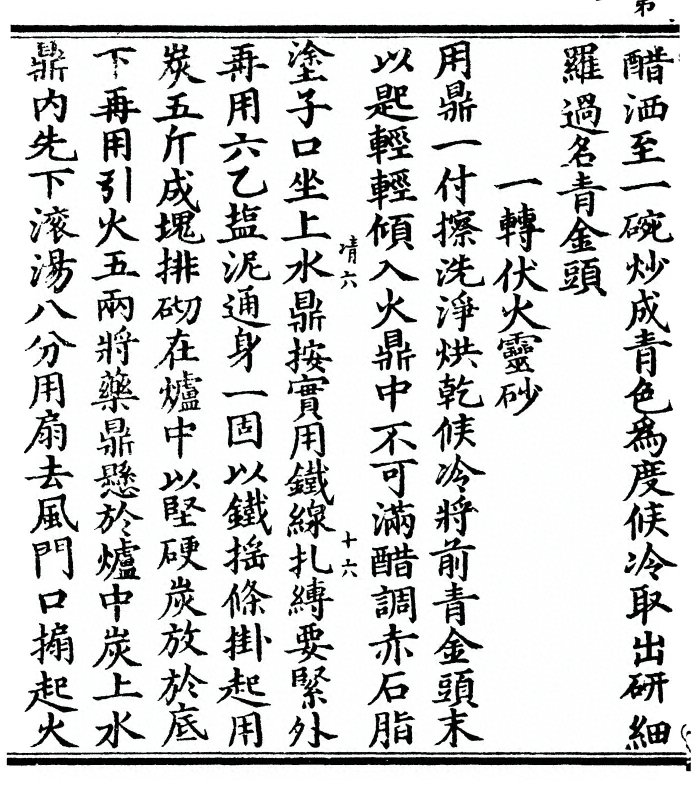 第
醋洒至一碗炒成青色為度候冷取出研細
羅過名青金頭
一轉伏火靈砂
用鼎一付擦洗淨烘乾候冷將前青金頭末
以匙輕輕傾入火鼎中不可滿醋調赤石脂
清六
十六
塗子口坐上水鼎按實用鐵線扎縛要緊外
再用六乙塩泥通身一固以鐵搖條掛起用
炭五斤成塊排砌在爐中以堅硬炭放於底
下再用引火五兩將藥鼎懸於爐中炭上水
鼎內先下滾湯八分用扇去風門口搧起火